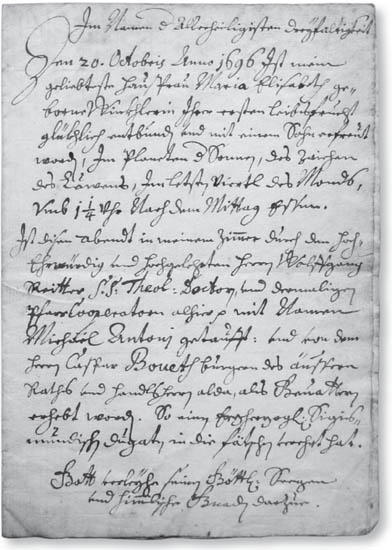 Im Namen d Allerheiligisten dreyfaltigkeit
Den 20. Octobris Anno 1696 Ist mein
geliebteste haus frau Maria Elisabeth ge-
borne Ihrer ersten leibsfrucht
glückhlich entbund. und mit einem Sohn erfreut
word, Im Planeten d Sonnen, des Zeichen
des Löwens, Im letsten Viertl des Monds,
Umb 1 1/4 Uhr Nach dem Mittag Essen.
Ist disen abendt in meinem Zimer durch den hoch
Ehrwürdig und hochgelehrten herrn Wolfgang
Reitter S.S: Theol: Doctor, und dermaligen
Pfarr Cooperatorn alhier mit Namen
Michaël Antonj getaufft: und von dem
herrn Caspar Boueth burgern des äussern
Raths und handlsherrn alda, als
erhebt word. So eim Erzherzogl: Sigis-
mundisch ducaten, in die fätschen verehrt hat.
Gott verleyhe seinen Göttl: Seegen
und himlische Gnad darzue.